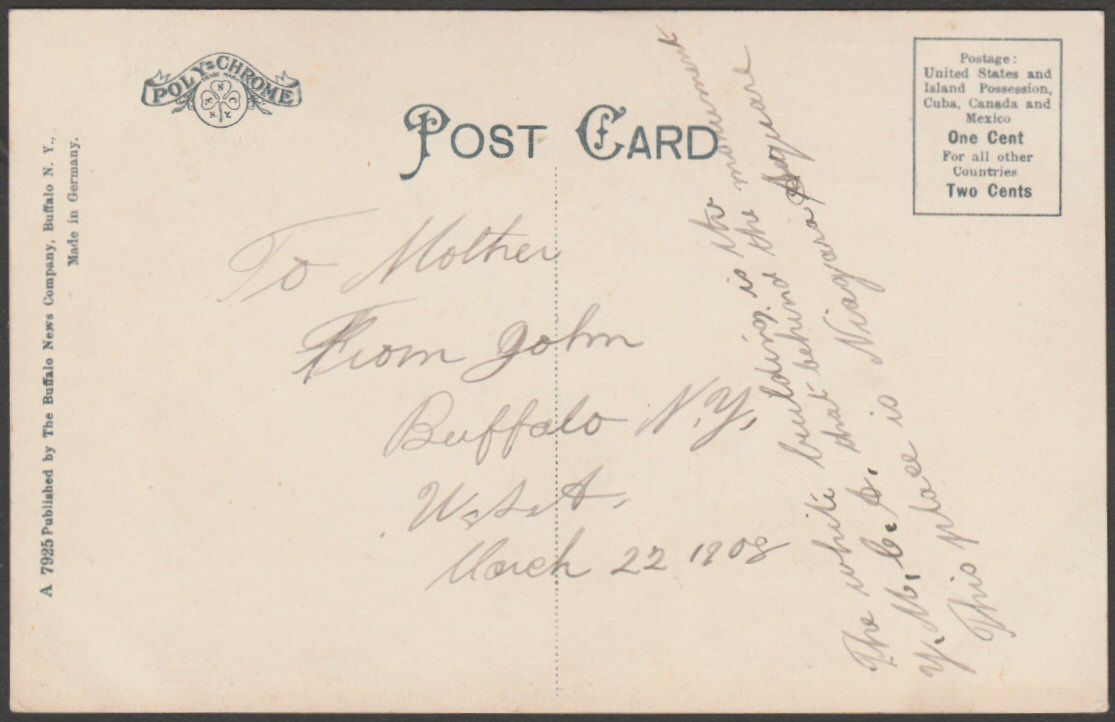 POLY-CHROME
TRADE MARK
POST CARD
Postage:
United States and
Island Possession,
Cuba, Canada and
Mexico
One Cent
For all other
Countries
Two Cents
A 7925 Published by The Buffalo News Company, Buffalo N. Y.,
Made in Germany.
To Mother
From John
Buffalo N.Y.
U.S.A.
March 22 1908
The white building is the
Y. M. C. A. that behind the monument
This place is Niagara, Square